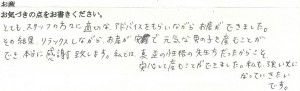 お産
お気づきの点をお書きください。
とても、スタッフの方々に適切な、アドバイスをもらいながらお産ができました。
その結果、リラックスしながら、お産が安産で元気な男の子を産むことが
でき本当に感謝致します。私は、真並の性格の先生方だったからこそ
安心して産むことができました。私も、強い母に
なっていきたい
です。